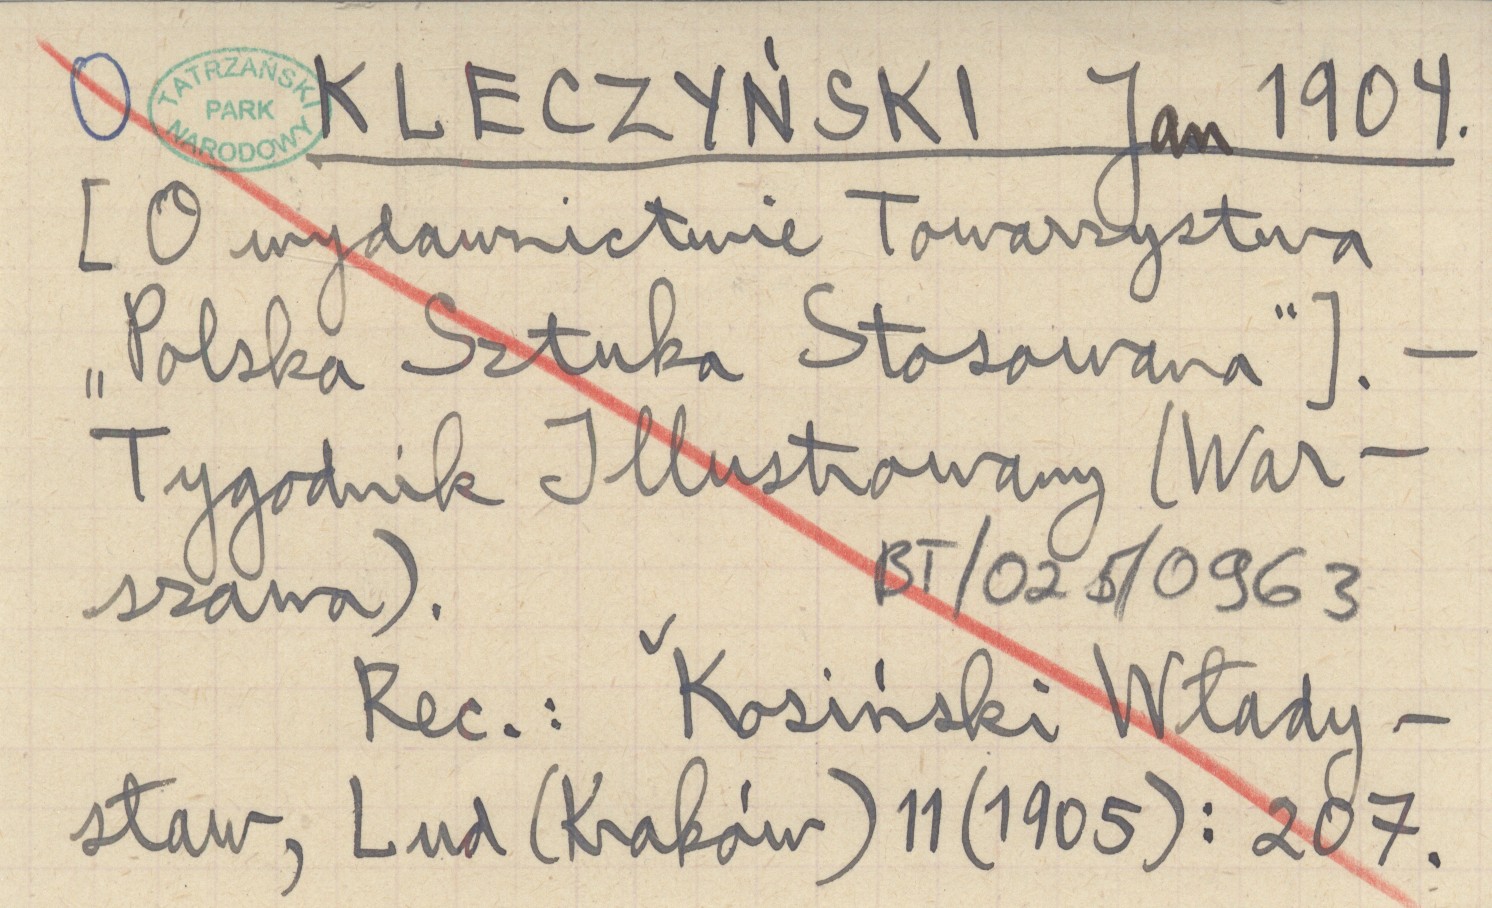 O TATRZAŃSKI PARK NARODOWY KLECZYŃSKI Jan 1904.
[O wydawnictwie Towarzystwa
„Polska Sztuka Stosowana"]. —
Tygodnik Illustrowany (War-
szawa).
BT/025/0963
Rec.: Kosiński Włady-
sław, Lud (Kraków) 11(1905): 207.